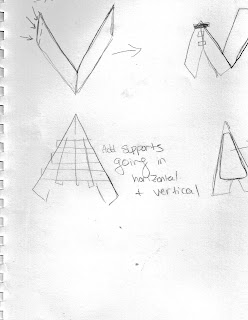 Add supports
going in
horizontal
+ vertical